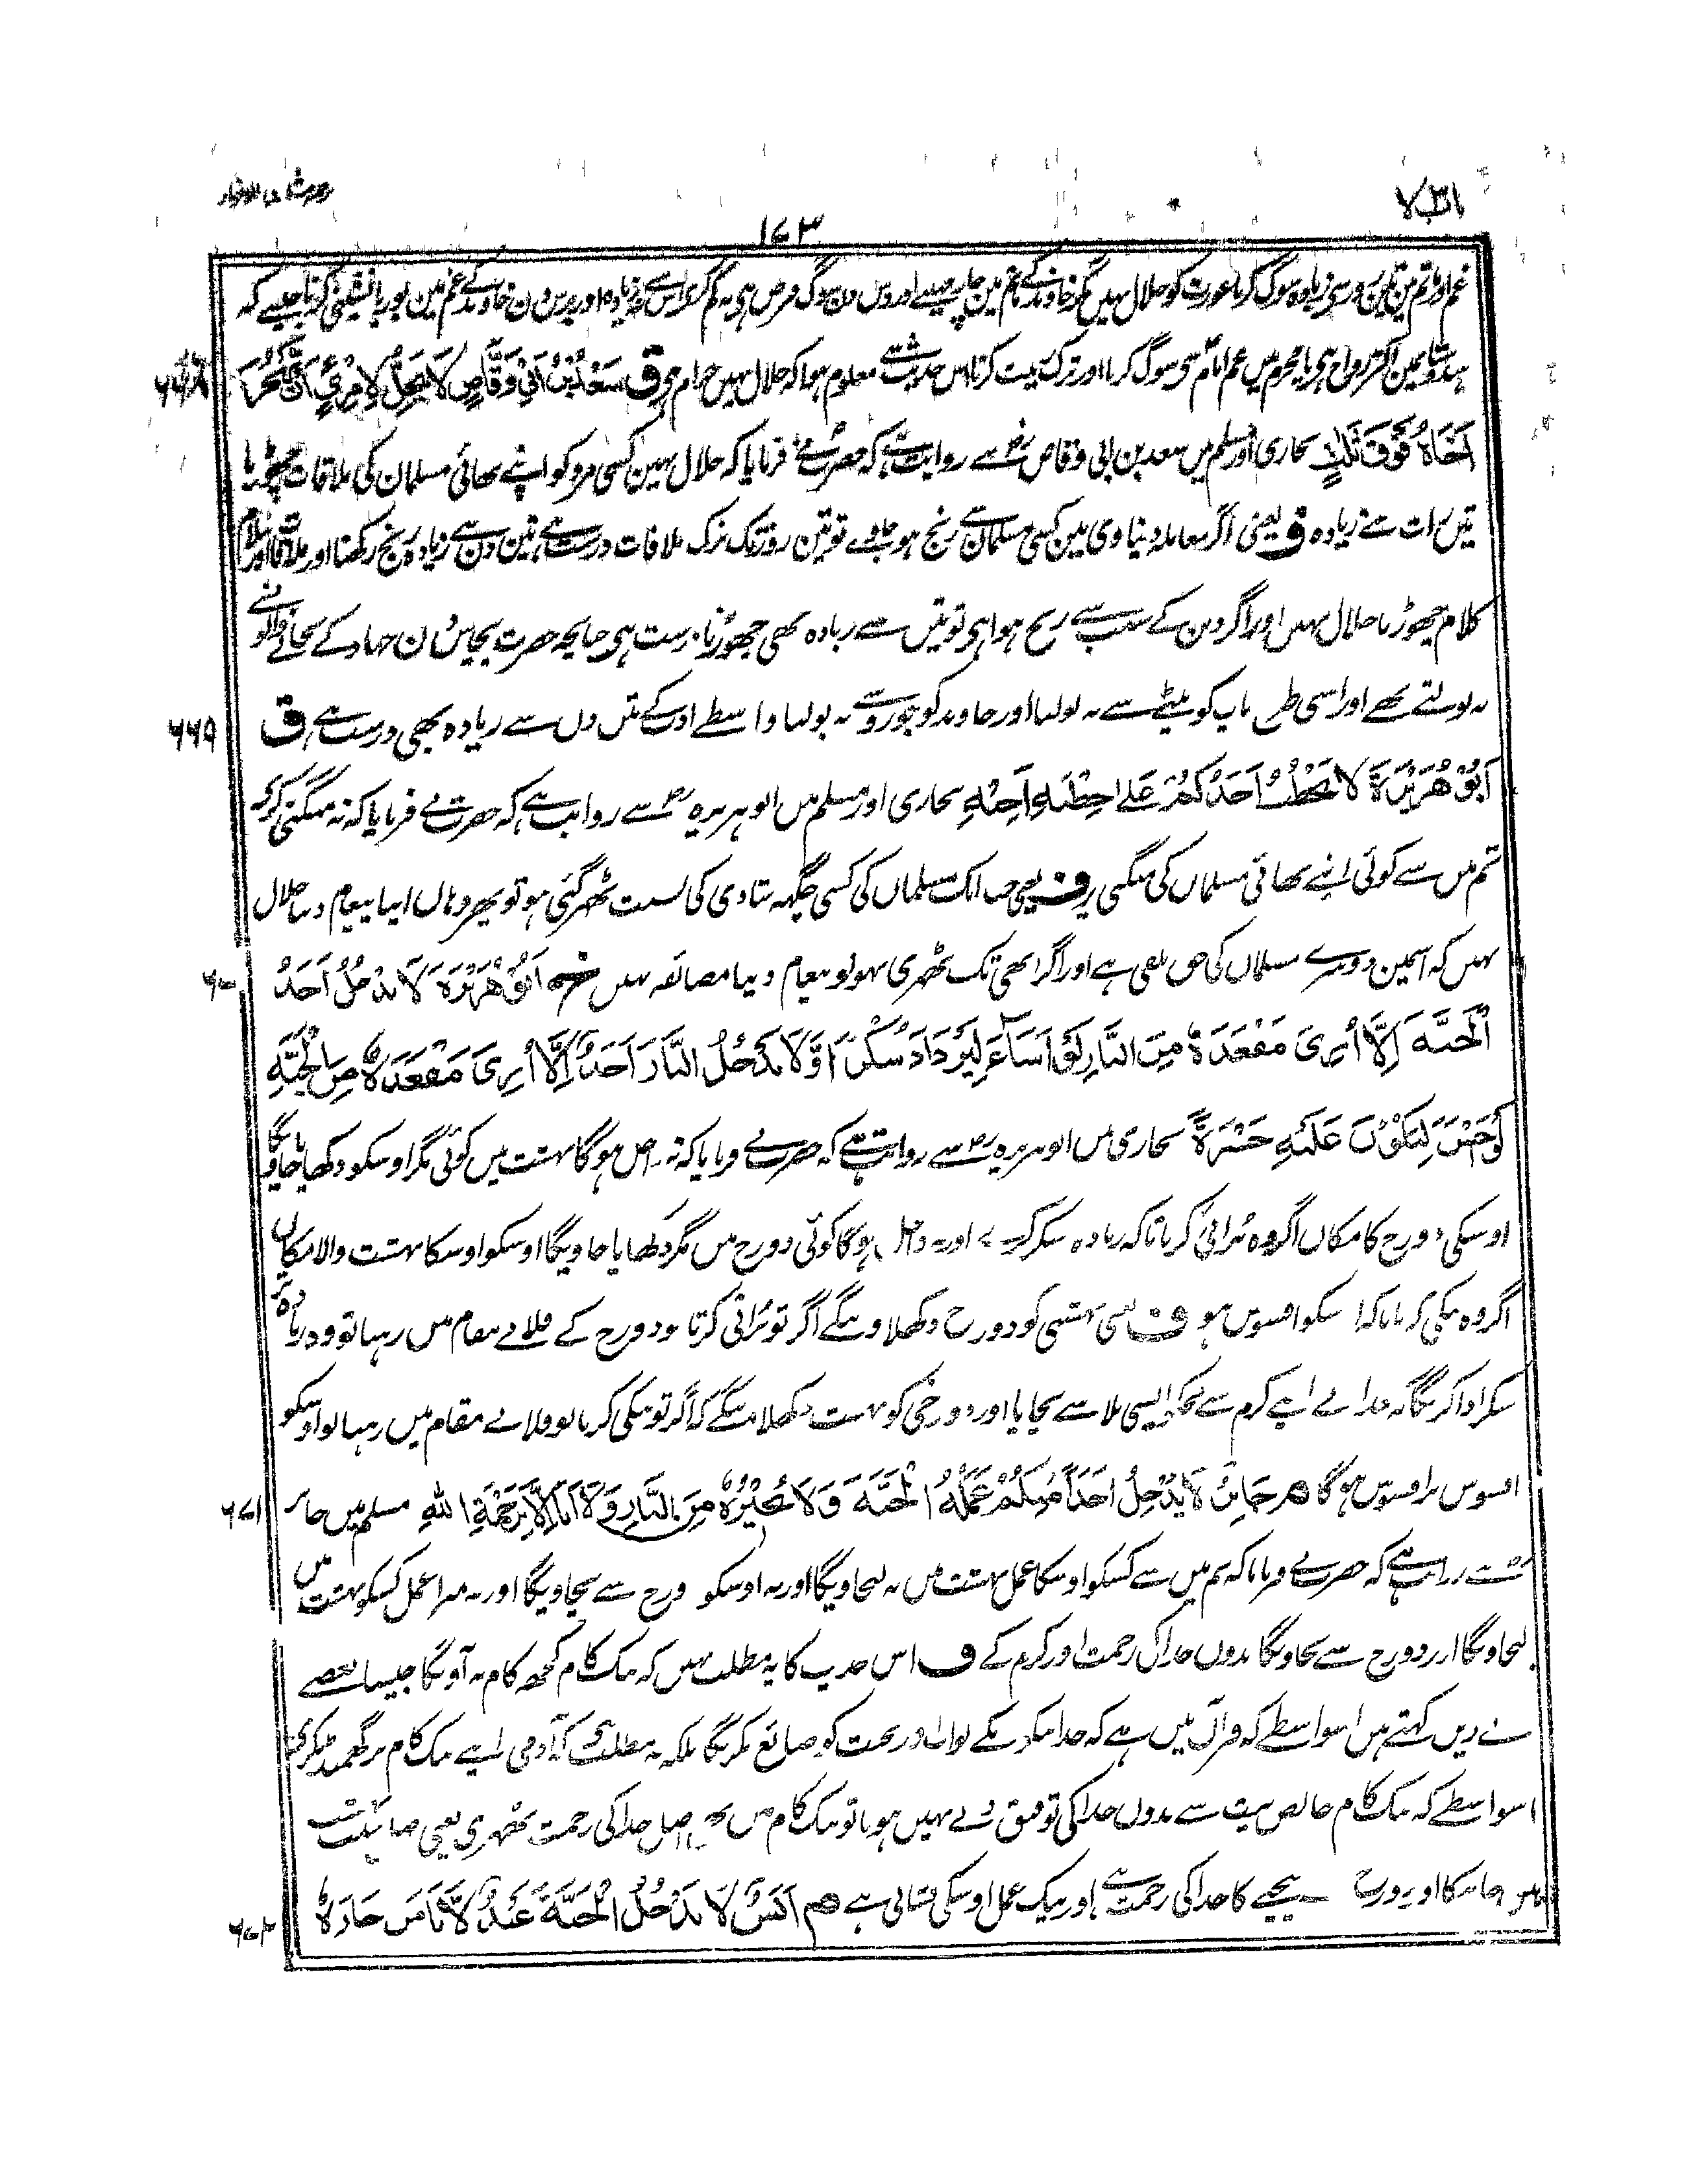 باب ٧
١٧٣
غم اور ماتم میں تین روز سی زیادہ سوگ کرنا عورت کو حلال نہیں مگر خاوند کے غم میں چار مہینے اور دس دن سوگ فرض ہی نہ کم کرے اس سے نہ زیادہ اور برس دن خاوند کے غم مین بوریا نشینی کرنا جیسے کہ
ہندوستان مین اکثر رواج ہی یا محرم میں غم امام سی سوگ کرنا اور ترک زینت کرنا اس حدیث سے معلوم ہوا کہ حلال نہیں حرام ہی ق سَعْدُ بْنُ اَبِیْ وَقَّاصٍ لَا یَحِلُّ لِامْرِئٍ اَنْ یَهْجُرَ
٦٦٨
اَخَاهُ فَوْقَ ثَلٰثٍ بخاری اور مسلم میں سعد بن ابی وقاص رض سے روایت ہے کہ حضرت نے فرمایا کہ حلال نہین کسی مرد کو اپنے بھائی مسلمان کی ملاقات چھوڑنا
تین رات سے زیادہ ف یعنی اگر معاملہ دنیاوی مین کسی مسلمان سے رنج ہو جاوے تو تین روز تک ترک ملاقات درست ہے تین دن سے زیادہ رنج رکھنا اور ملاقات اور سلام
کلام چھوڑنا حلال نہیں اور اگر دین کے سبب سے رنج ہوا ہی تو تین سے زیادہ بھی چھوڑنا درست ہی چنانچہ حضرت پچاس دن جہاد کے نجانے والونسے
نہ بولتے تھے اور اسی طرح باپ کو بیٹے سے نہ بولنا اور خاوند کو جورو سے نہ بولنا واسطے ادب کے تین دن سے زیادہ بھی درست ہے ق
٦٦٩
اَبُوْ هُرَیْرَةَ لَا یَخْطُبُ اَحَدُكُمْ عَلٰی خِطْبَةِ اَخِیْهِ بخاری اور مسلم میں ابو ہریرہ رض سے روایت ہے کہ حضرت نے فرمایا کہ نہ منگنی کرے
تم میں سے کوئی اپنے بھائی مسلمان کی منگنی پر ف یعنی جب ایک مسلمان کی کسی جگہہ شادی کی نسبت ٹھہر گئی ہو تو پھر وہاں اپنا پیغام دینا حلال
نہیں کہ اسمین دوسرے مسلمان کی حق تلفی ہے اور اگر ابھی تک ٹھہری نہو تو پیغام دینا مضائقہ نہیں خ اَبُوْ هُرَیْرَةَ لَا یَدْخُلُ اَحَدٌ
٦٧٠
الْجَنَّةَ اِلَّا اُرِیَ مَقْعَدَهٗ مِنَ النَّارِ لَوْ اَسَاءَ لِیَزْدَادَ شُكْرًا وَّلَا یَدْخُلُ النَّارَ اَحَدٌ اِلَّا اُرِیَ مَقْعَدَهٗ مِنَ الْجَنَّةِ
لَوْ اَحْسَنَ لِیَكُوْنَ عَلَیْهِ حَسْرَةً بخاری میں ابو ہریرہ رض سے روایت ہے کہ حضرت نے فرمایا کہ نہ داخل ہوگا بہشت میں کوئی مگر اوسکو دکھایا جاویگا
اوسکی دوزخ کا مکان اگر وہ برائی کرتا تاکہ زیادہ شکر کرے اور نہ داخل ہوگا کوئی دوزخ میں مگر دکھایا جاویگا اوسکو اوسکا بہشت والا مکان
اگر وہ نیکی کرتا تاکہ اسکو افسوس ہو ف یعنی بہشتی کو دوزخ دکھلاوینگے اگر تو برائی کرتا تو دوزخ کے فلانے مقام میں رہتا تو وہ زیادہ تر
شکر ادا کریگا کہ خدا نے اپنے کرم سے مجکو ایسی بلا سے بچایا اور دوزخی کو بہشت دکھلاینگے کہ اگر تو نیکی کرتا تو فلانے مقام میں رہتا تو اوسکو
افسوس پر افسوس ہوگا م جَابِرٌ لَا یُدْخِلُ اَحَدًا مِّنْكُمْ عَمَلُهُ الْجَنَّةَ وَلَا یُجِیْرُهٗ مِنَ النَّارِ وَلَا اَنَا اِلَّا بِرَحْمَةِ اللّٰهِ مسلم میں جابر
٦٧١
سے روایت ہے کہ حضرت نے فرمایا کہ تم میں سے کسیکو اوسکا عمل بہشت میں نہ لیجاویگا اور نہ اوسکو دوزخ سے بچاویگا اور نہ میرا عمل کسیکو بہشت میں
لیجاویگا اور دوزخ سے بچاویگا بدون خدا کی رحمت اور کرم کے ف اس حدیث کا یہ مطلب نہیں کہ نیک کام کچھ کام نہ آویگا جیسا بعضے
بے دین کہتے ہیں اسواسطے کہ قرآن میں ہے کہ خدا نیکونکے ثواب اور محنت کو ضائع نکریگا بلکہ یہ مطلب ہے کہ آدمی اپنے نیک کام پر گھمنڈ نکرے
اسواسطے کہ نیک کام خالص نیت سے بدون خدا کی توفیق دئے نہیں ہوتا تو نیک کام میں بھی اصل خدا کی رحمت ٹھہری یعنی
جانیکا اور دوزخ سے بچنے کا خدا کی رحمت ہے اور نیک عمل اوسکی نشانی ہے م اَنَسٌ لَا یَدْخُلُ الْجَنَّةَ عَبْدٌ لَّا یَاْمَنُ جَارُهٗ
٦٧٢